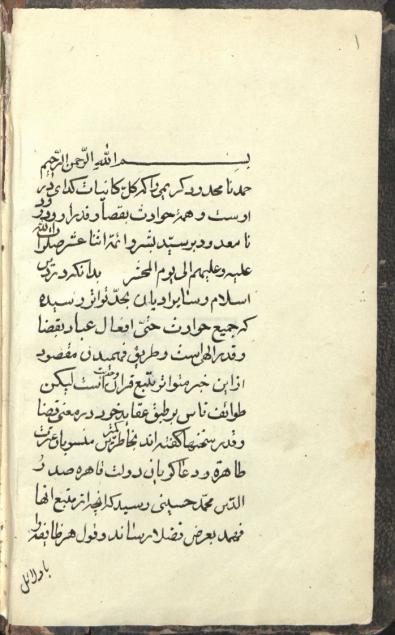 ۱
بسم الله الرحمن الرحیم
حمد نامحدود کریمی را که کل کائنات گدای در
اوست و همۀ حوادث بقضا و قدر او و درود
نامعدود بر سید بشر و ائمۀ اثنا عشر صلوات الله
علیه و علیهم الی یوم المحشر بدانکه در دین
اسلام و سایر ادیان بحد تواتر رسیده
که جمیع حوادث حتی افعال عباد بقضا
و قدر الهی است و طریق فهمیدن مقصود
از این خبر متواتر تتبع قرائن است لیکن
طوائف ناس بر طبق عقاید خود در معنی قضا
و قدر سخنها گفته اند بخاطر منسوبان عترت
طاهره و دعاگویان دولت قاهره صدر
الدین محمد حسینی رسید که آنچه از تتبع آنها
فهمد بعرض فضلا رساند و قول هر طایفه را
با دلائل